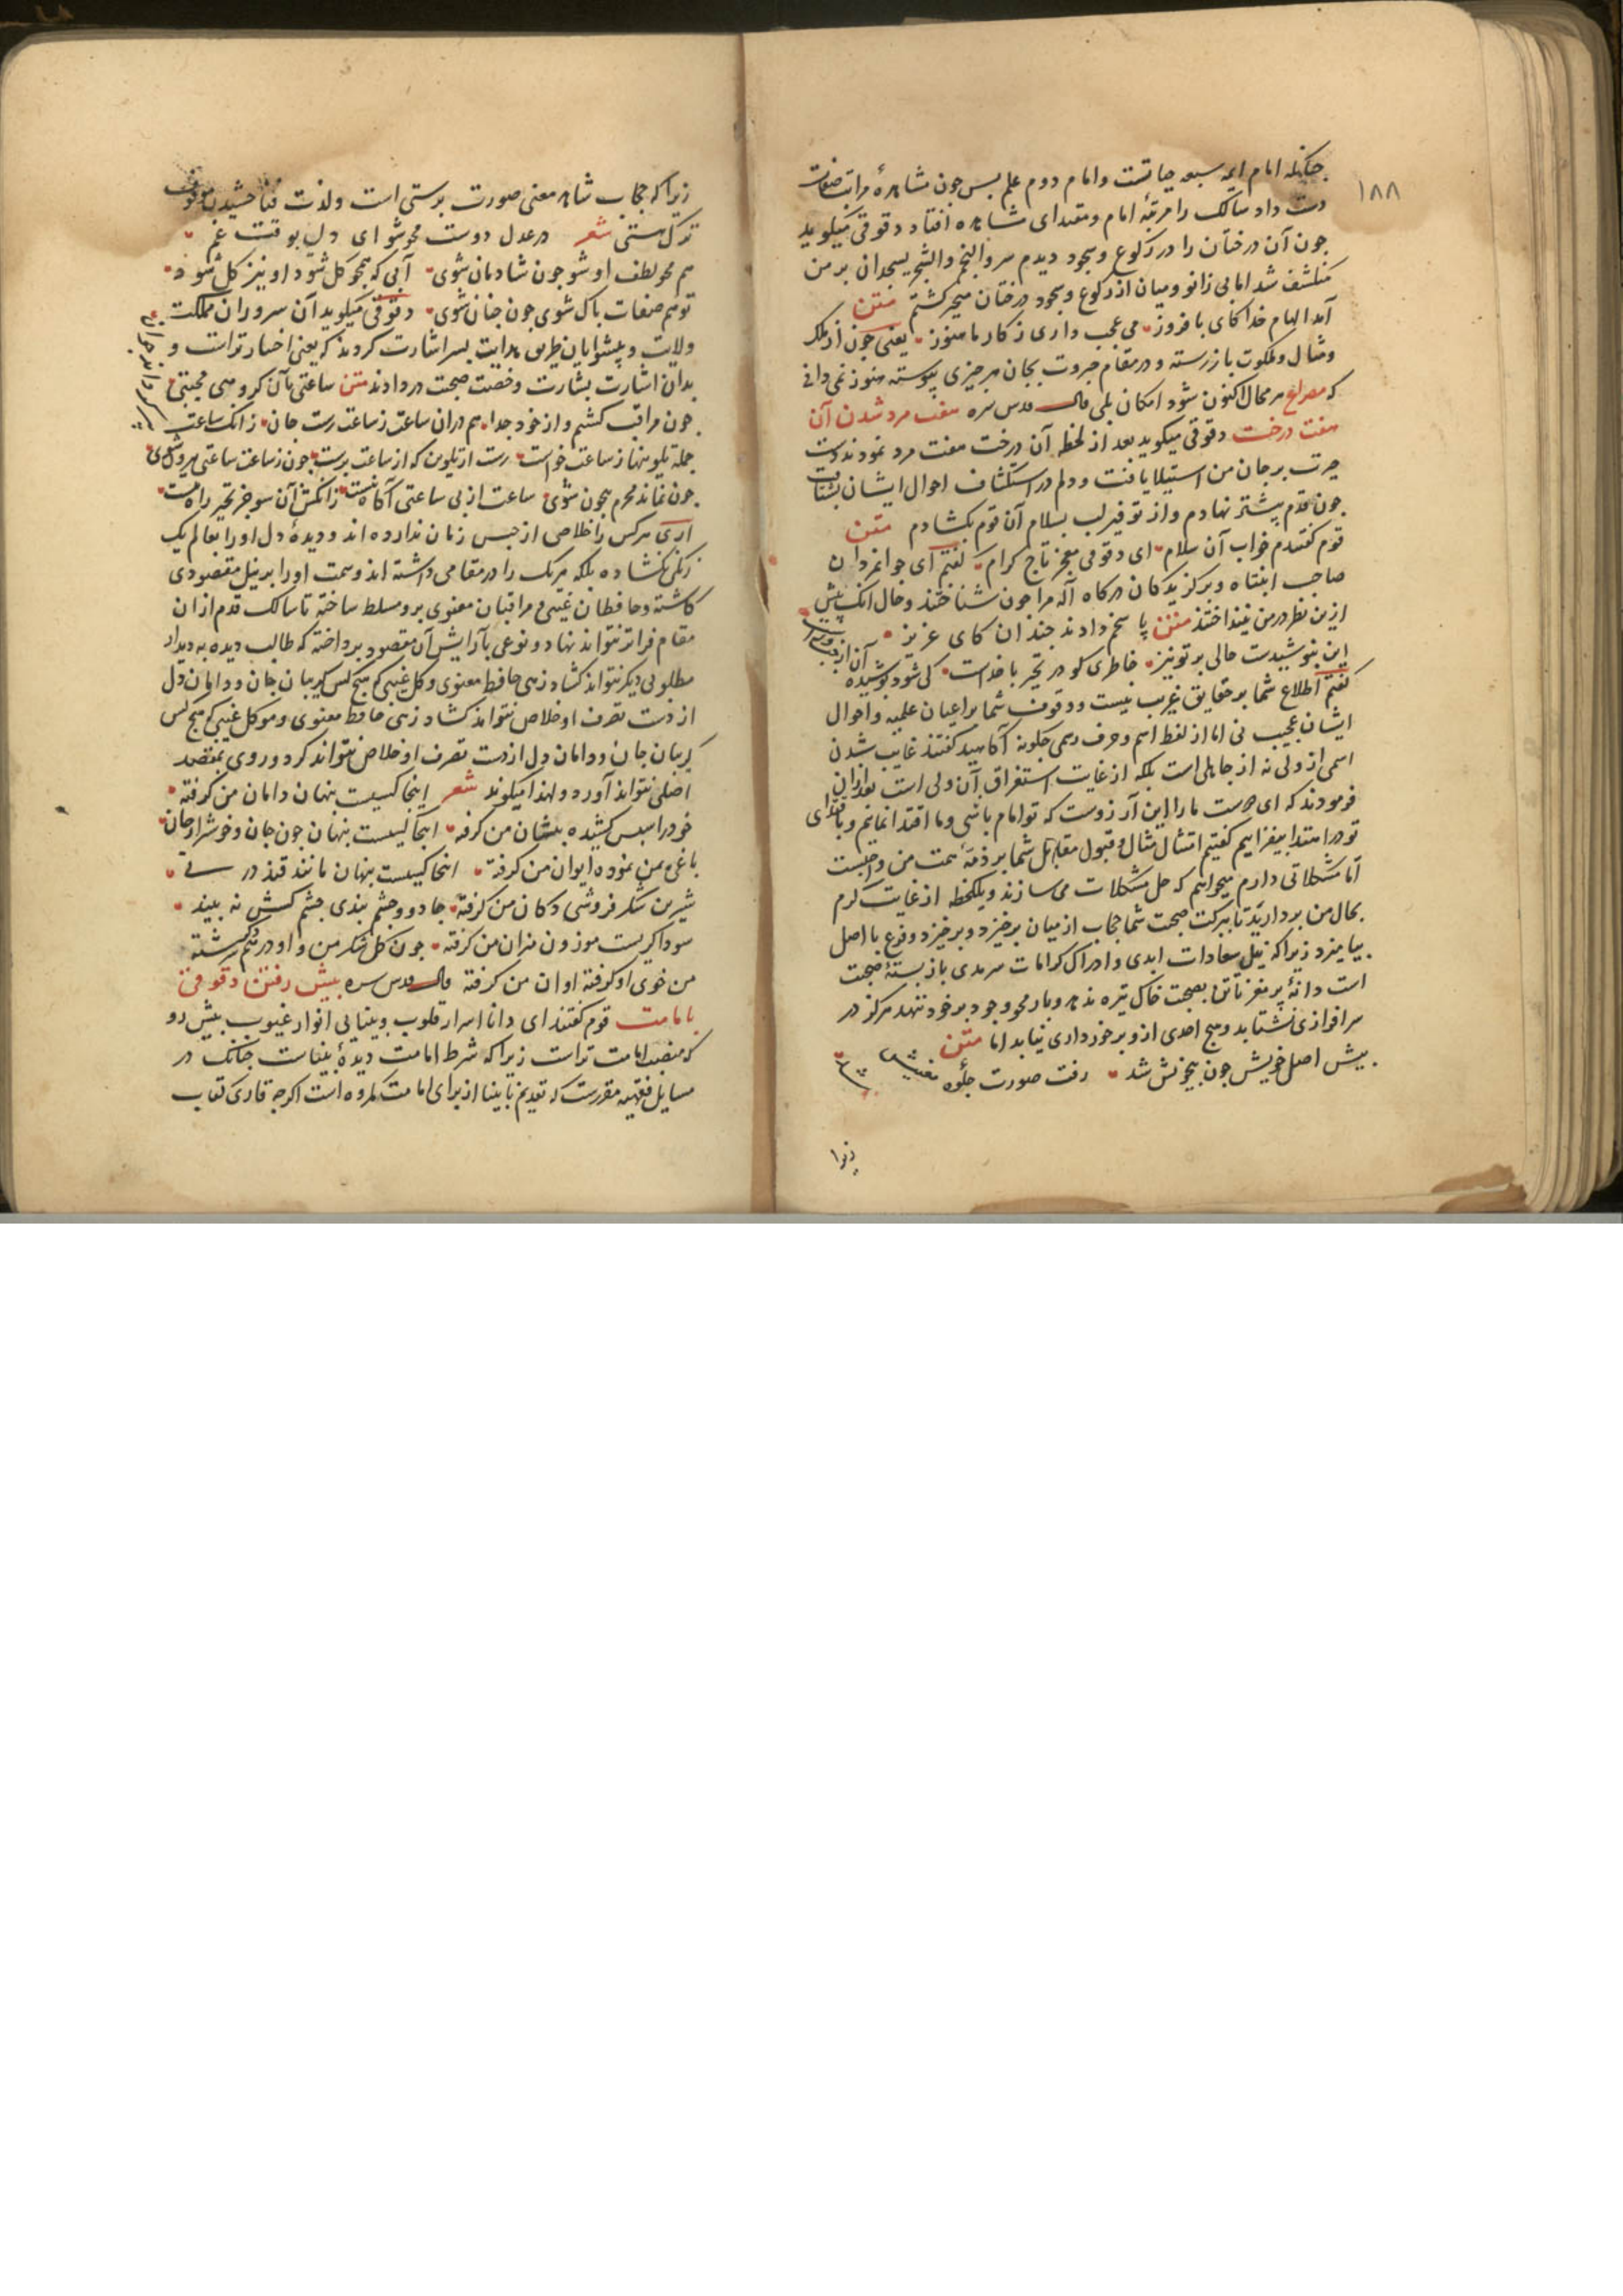 ۱۸۸
چنانکه امام ایمه سبعه حیاتست و امام دوم علم بس جون مشاهدهٔ مراتب صفات
دست داد سالک را مرتبهٔ امام و مقتدای مشاهده افتاد دقوقی میکوید
جون آن درختان را در رکوع و سجود دیدم سر و النجم و الشجر یسجدان بر من
منکشف شد اما بی زانو و میان از رکوع و سجود درختان متحیر کشتم متن
آمد الهام خدا کای با فروز می عجب داری ز کار ما هنوز یعنی جون از ملک
و مثال و ملکوت باز رسته و در مقام جبروت بجان هر چیزی پیوسته هنوز نمی دانی
که مصراع هر محال اکنون شود امکان بلی قال قدس سره هفت مرد شدن آن
هفت درخت دقوقی میکوید بعد از لحظه آن درخت هفت مرد نمودند و دست
حیرت بر جان من استیلا یافت و دلم در استکشاف احوال ایشان بشتافت
جون قدم پیشتر نهادم و از توقیر لب بسلام آن قوم بکشادم متن
قوم کفتندم جواب آن سلام ای دقوقی مفخر تاج کرام کفتم آی جوانمردان
صاحب انتباه و برکزیدکان درکاه آله مرا جون شناختند و حال آنک پیش
ازین نظر در من نینداختند متن پاسخم دادند خندان کای عزیز
این بپوشیدست حالی بر تو نیز خاطری کو در تحیر با خداست کی شود پوشیده
کفتم اطلاع شما بر حقایق غریب نیست و وقوف شما بر اعیان علمیه و احوال
ایشان عجیب نی اما از لفظ اسم و حرف رسمی جکونه آکاهید کفتند غایب شدن
اسمی از ولی نه از جاهلی است بلکه از غایت استغراق آن ولی است بعد از آن
فرمودند که ای دوست ما را این آرزوست که تو امام باشی و ما اقتدا نماییم و باقتدای
تو در اهتدا بیفزاییم کفتیم امتثال مثال و قبول مقال شما بر ذمهٔ همت من واجبست
اما مشکلاتی دارم میخواهم که حل مشکلات می سازند و یکلحظه از غایت کرم
بحال من بردارید تا ببرکت صحبت شما حجاب از میان برخیزد و برخیزد و فرع با اصل
بیامیزد زیرا که نیل سعادات ابدی و ادراک کرامات سرمدی باز بستهٔ صحبت
است دانهٔ پر مغز تا تن بصحبت خاک تیره ندهد و بار محو وجود بر خود ننهد هرکز در
سرافرازی نشتابد و هیج احدی ازو برخورداری نیابد اما متن
پیش اصل خویش جون بیخویش شد رفت صورت جلوهٔ معنیش شد
زیرا
زیرا که حجاب شاهد معنی صورت پرستی است و لذت فنا چشیدن موقوف
ترک هستی شعر در عدل دوست محو شو ای دل بوقت غم
هم محو لطف او شو جون شادمان شوی آبی که محو کل شود او نیز کل شود
تو هم صفات پاک شوی جون جنان شوی دقوقی میکوید آن سروران مملکت
ولایت و پیشوایان طریق هدایت بسر اشارت کردند که یعنی اختیار تراست و
بدان اشارت بشارت رخصت صحبت در دادند متن ساعتی با آن کروه مجتبی
جون مراقب کشتم و از خود جدا هم در آن ساعت ز ساعت رست جان زانک ساعت
جمله تلوینها ز ساعت خواست رست از تلوین که از ساعت برست جون ز ساعت ساعتی بیرون شوی
جون نماند محرم بیجون شوی ساعت از بی ساعتی آکاه نیست زانکش آن سو جز تحیر راه نیست
آری هر کس را خلاص از حبس زمان نداده اند و دیدهٔ دل او را بعالم یک
رنکی نکشاده بلکه هر یک را در مقامی داشته اند و همت او را بر نیل مقصودی
کماشته و حافظان غیبی و مراقبان معنوی برو مسلط ساخته تا سالک قدم از آن
مقام فراتر نتواند نهاد و نوعی بآرایش آن مقصود پرداخته که طالب دیده به دیدار
مطلوبی دیکر نتواند کشاد زهی حافظ معنوی و کل غیبی که هیج کس کریبان جان و دامان دل
از دست تصرف او خلاص نتواند کشاد زهی حافظ معنوی و موکل غیبی که هیج کس
کریبان جان و دامان دل از دست تصرف او خلاص نتواند کرد و روی بمقصد
اصلی نتواند آورد و لهذا میکوید شعر اینجا کسیست پنهان دامان من کرفته
خود را سپس کشیده پیشان من کرفته اینجا کسیست پنهان جون جان و خوشتر از جان
باغی بمن نموده ایوان من کرفته اینجا کسیست پنهان مانند قند در نی
شیرین شکر فروشی دکان من کرفته جادو و جشم بندی جشم کسش نه بیند
سوداکریست موزون میزان من کرفته جون کل شکر من و او در همدکر سرشته
من خوی او کرفته او آن من کرفته قال قدس سره پیش رفتن دقوقی
بامامت قوم کفتند ای دانا اسرار قلوب و بینایی انوار غیوب پیش رو
که منصب امامت تراست زیرا که شرط امامت دیدهٔ بیناست جنانک در
مسایل فقهیه مقررست که تقدیم نابینا از برای امامت مکروه است اکرچه قاری کتاب